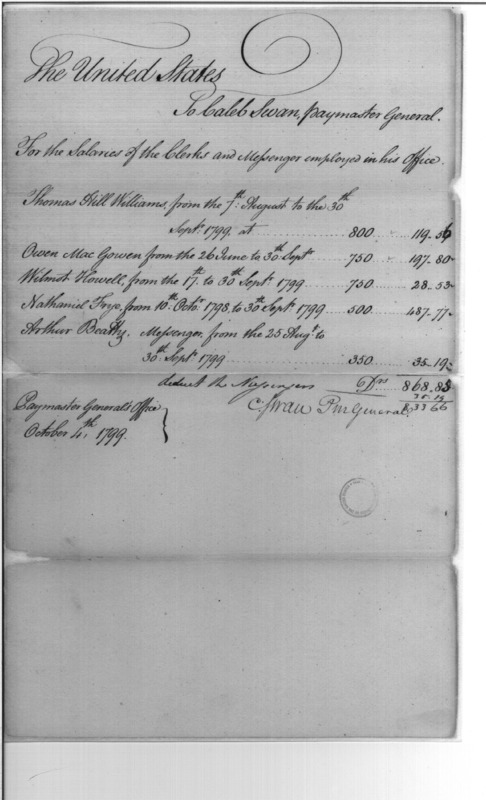 The United States
To Caleb Swan, paymaster General.
For the Salaries of the Clerks and Messenger employed in his Office.
Thomas Hill Williams, from the 7th. August to the 30th
Septr. 1799 at 800 119.56
Owen Mac Gowen from the 26 June to 30th Septr 750 197.80
Wilmot Howell, from the 17th. to 30th Septr 1799 750 28.53
Nathaniel Frye, from 10th. Octr. 1798, to 30th Septr 1799 500 487.77
Arthur Beatty. Messenger, from the 25 Augt. to
30th. Septr 1799 350 35.19
deduct the Messengers Drs 868.85
35.19
833 66
CSwan PmGeneral.
Paymaster General's Office
October 4th, 1799.